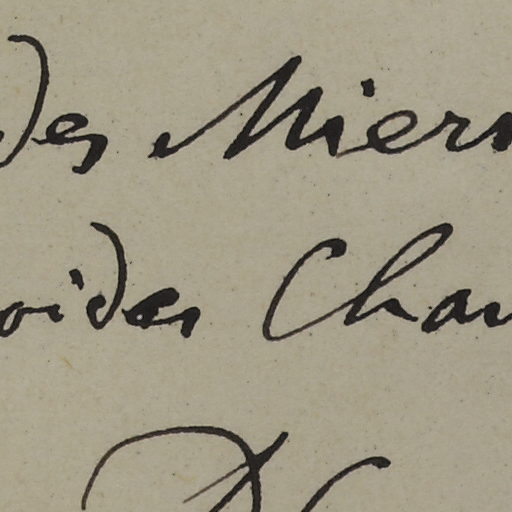 des Miers
oides Cham